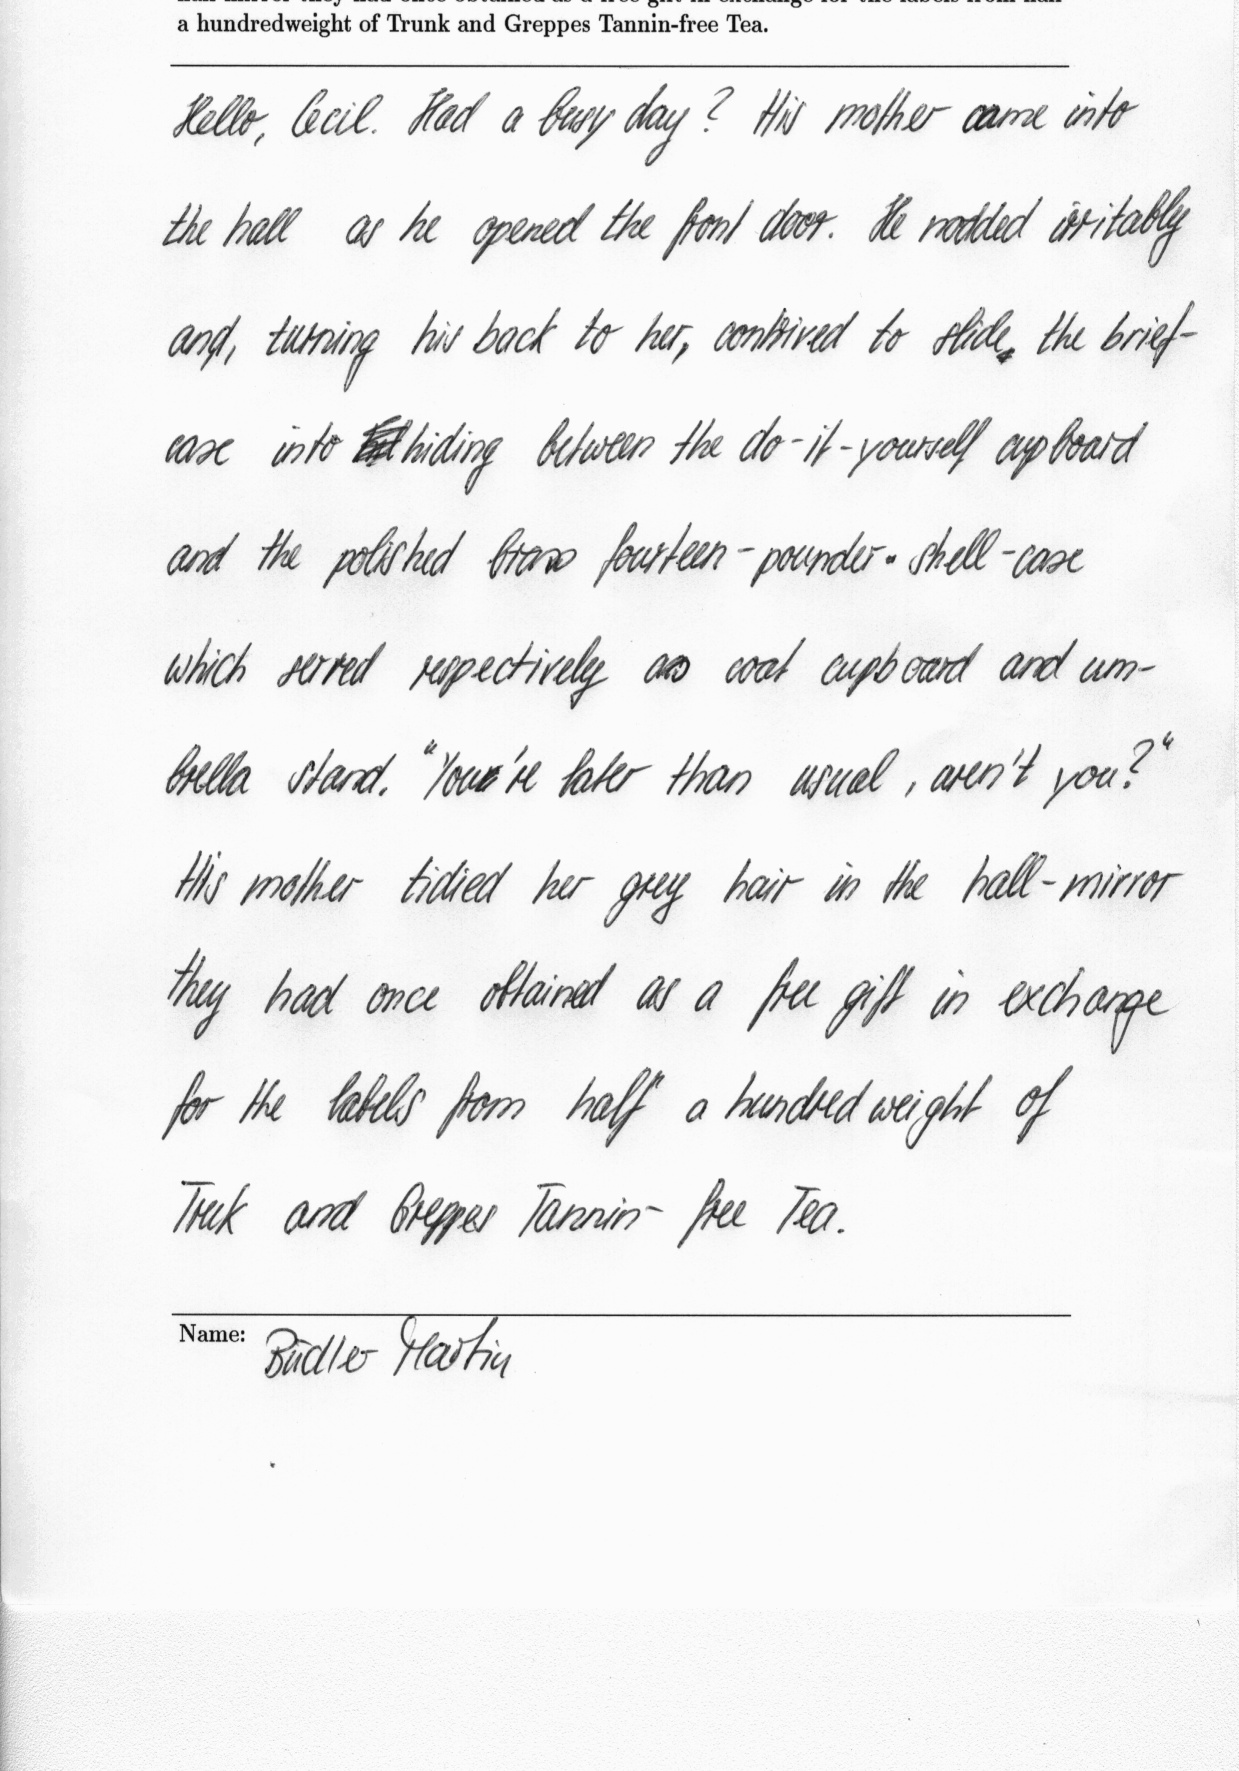 a hundredweight of Trunk and Greppes Tannin-free Tea.
Hello, Cecil. Had a busy day? His mother came into
the hall as he opened the front door. He nodded irritably
and, turning his back to her, contrived to slide the brief-
case into hiding between the do-it-yourself cupboard
and the polished brass fourteen-pounder-shell-case
which served respectively as coat cupboard and um-
brella stand. "You're later than usual, aren't you?"
His mother tidied her grey hair in the hall-mirror
they had once obtained as a free gift in exchange
for the labels from half a hundredweight of
Truk and Greppes Tannin-free Tea.
Name: Büdler Martin